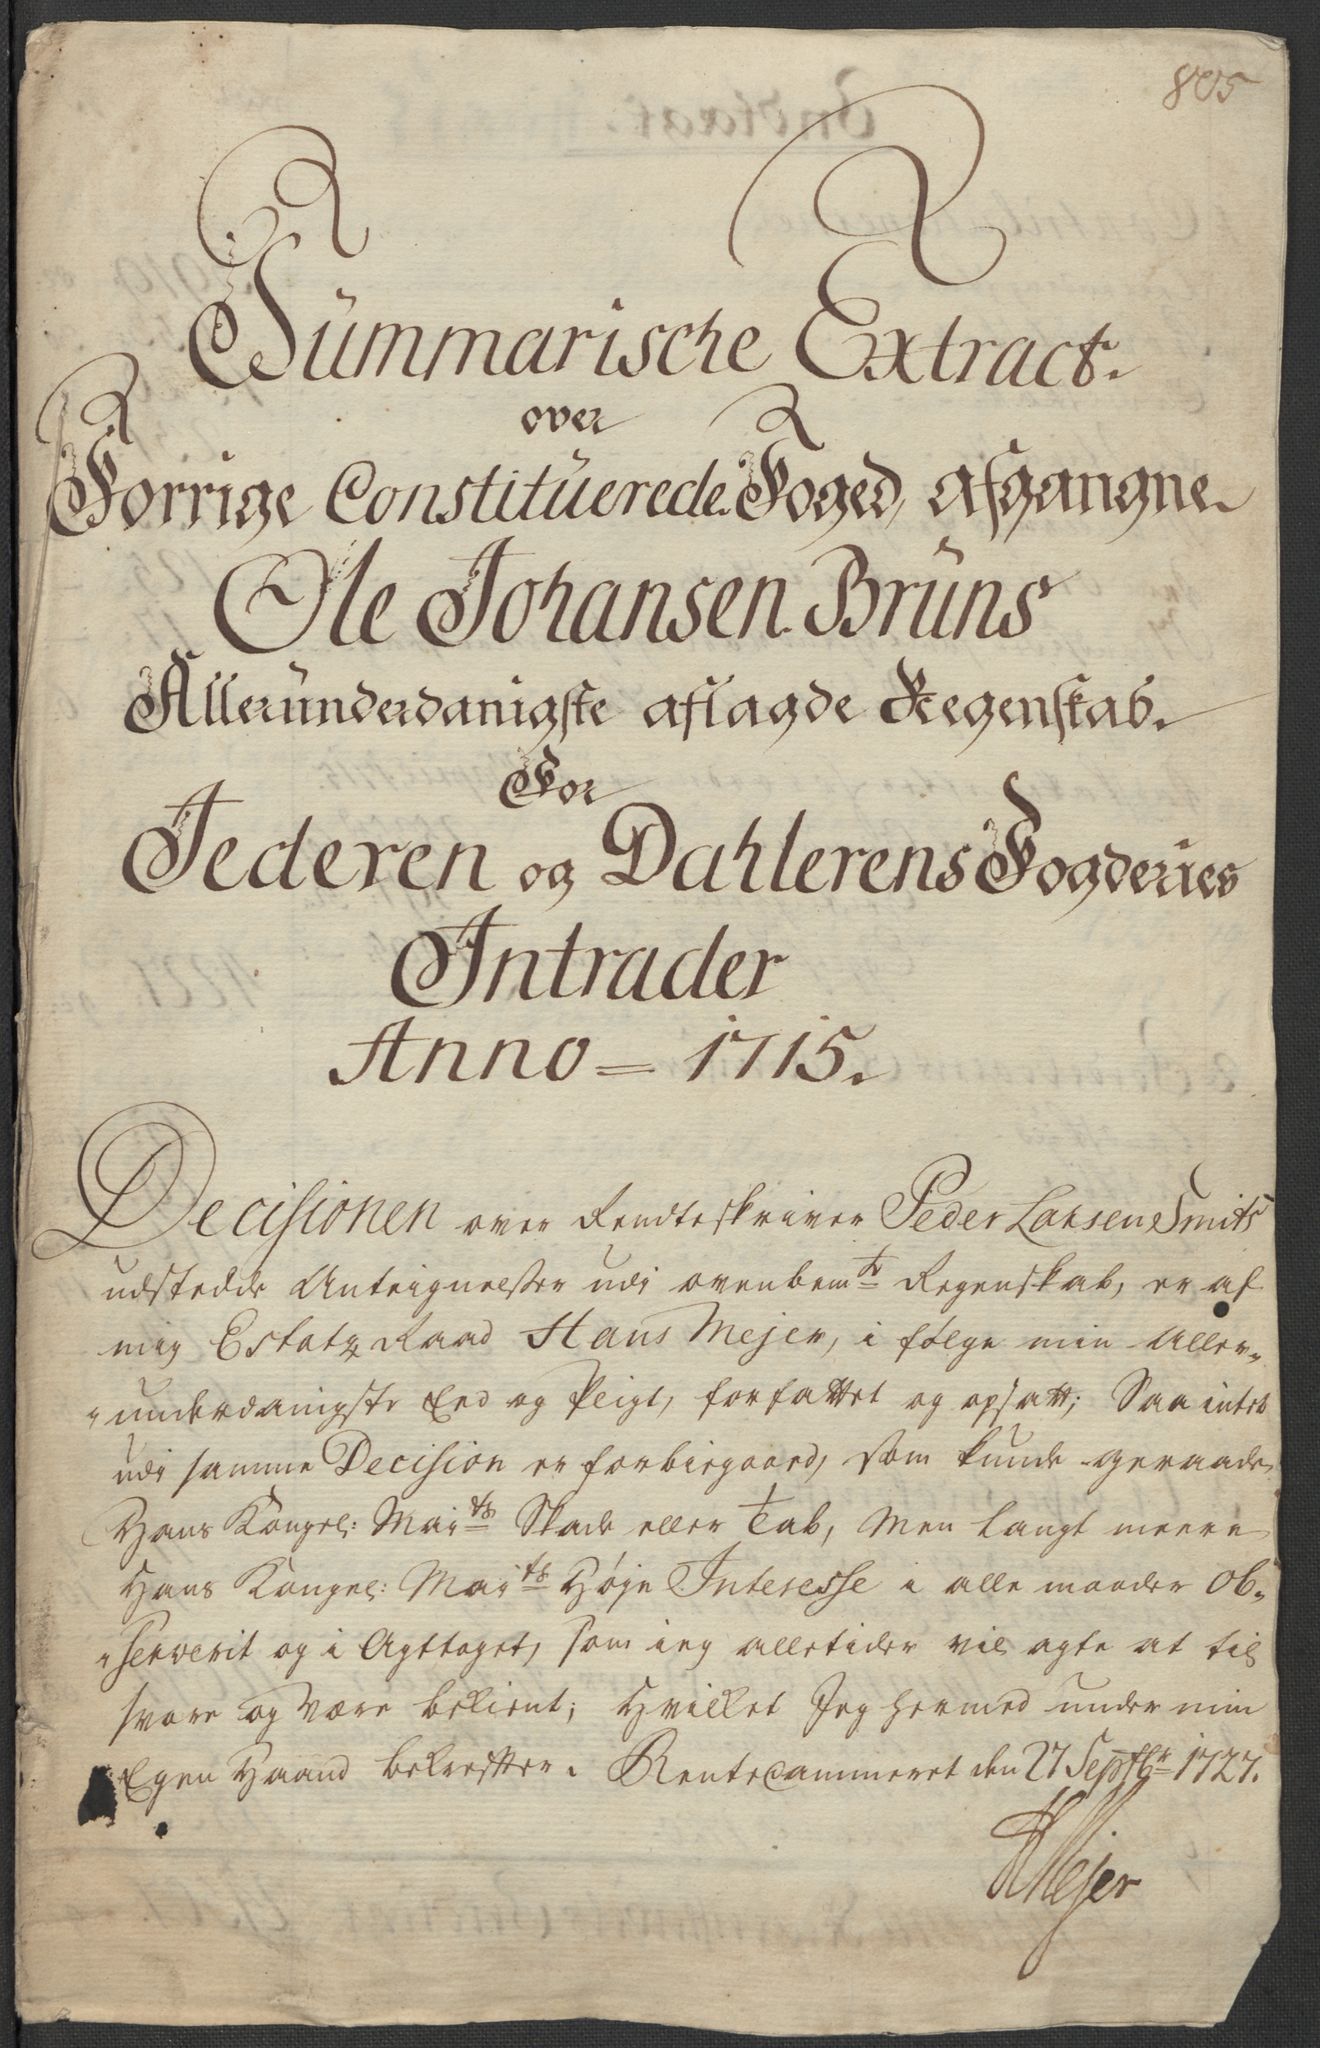 805
Summarische Extract
over
Forrige Constituerede Foged, afgangne
Ole Johansen Bruns
Alleründerdanigste aflagde Regenskab.
For
Jederen og Dahlerens Fogderies
Intrader
Anno = 1715.
Decisionen over Rendteskriver Peder Larsen Smits
udstedde Anteignelsser udi ovenbemte Regenskab, er af
mig Estatz Raad Hans Mejer, i følge min Aller-
underdanigste Eed og Pligt, forfattet og opsatt; Saa intet
udi samme Decision er forbiegaaed, som kunde geraade
Hans Kongel: Maits Skade eller Tab, Men langt meere
Hans Kongel: Maits Høje Interesse i alle maader Ob-
serverit og i Agttaget, som ieg alletider vil agte at til
svare og være bekient; Hvilket Jeg hermed under min
Egen Haand bekreffter. Rentecammeret den 27 Septbr 1727.
HMejer